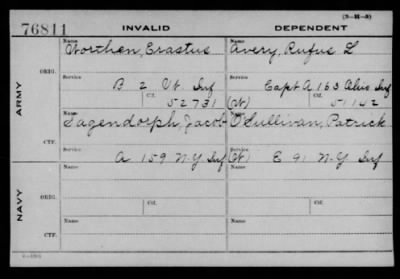 (3-M-3)
76811 INVALID DEPENDENT
Name Name
Worthen, Erastus Avery, Rufus L
ORIG. Service Service
B 2 Vt. Inf Capt A 163 Ohio Inf
Ctf. Ctf.
52731 (W) 51142
ARMY
Name Name
Sagendorph, Jacob O'Sullivan, Patrick
CTF. Service Service
A 159 N-Y Inf (W) E 91 N-Y Inf
Name Name
ORIG.
Ctf. Ctf.
NAVY
Name Name
CTF.